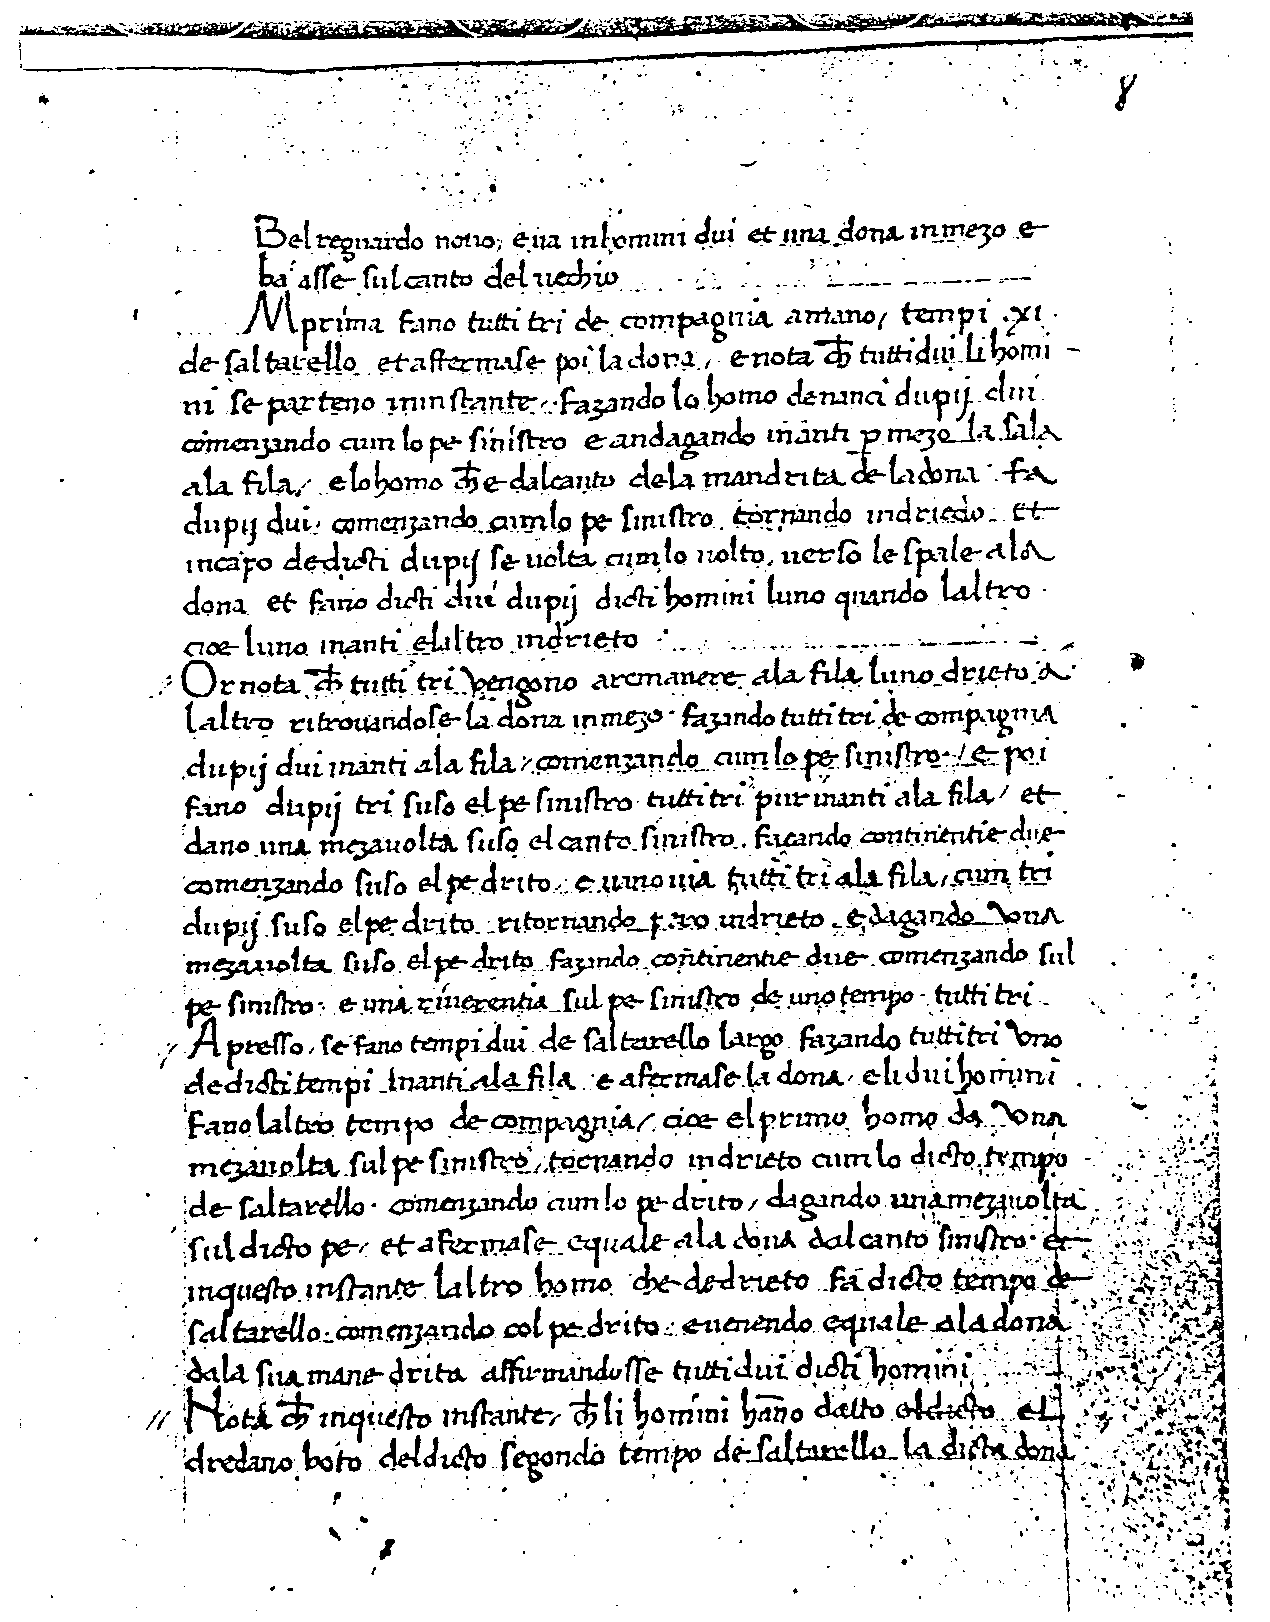 8
Belreguardo nouo, e ua in homini dui et una dona in mezo e
ba asse sul canto del uechio
M prima fano tutti tri de compagnia amano / tempi .xi.
de saltarello et affermase poi la dona / e nota ch tutti dui li homi
ni se parteno in instante / fazando lo homo denanci dupij dui
comenzando cum lo pe sinistro e andagando inanti p mezo la sala
ala fila / e lo homo ch e dal canto dela man drita de la dona fa
dupij dui / comenzando cum lo pe sinistro tornando indriedo et
in capo de dicti dupij se uolta cum lo uolto uerso le spale ala
dona et fano dicti dui dupij dicti homini luno quando laltro
cioe luno inanti e laltro indrieto
Or nota ch tutti tri vengono aremanere ala fila luno drieto a
laltro ritrouandose la dona in mezo fazando tutti tri de compagnia
dupij dui inanti ala fila / comenzando cum lo pe sinistro / e poi
fano dupij tri suso el pe sinistro tutti tri pur inanti ala fila / et
dano una mezauolta suso el canto sinistro facando continentie due
comenzando suso el pe drito / e uano uia tutti tri ala fila / cum tri
dupij suso el pe drito ritornando indrieto e dagando vona
mezauolta suso el pe drito fazando continentie due comenzando sul
pe sinistro e una riuerentia sul pe sinistro de uno tempo tutti tri
Apresso / se fano tempi dui de saltarello largo fazando tutti tri vno
de dicti tempi inanti ala fila e afermase la dona / e li dui homini
fano laltro tempo de compagnia / cioe el primo homo da vona
mezauolta sul pe sinistro / tornando indrieto cum lo dicto tempo
de saltarello comenzando cum lo pe drito / dagando una mezauolta
sul dicto pe / et afermase equale ala dona dal canto sinistro et
in questo instante laltro homo che de drieto fa dicto tempo de
saltarello comenzando col pe drito e uenendo equale ala dona
dala sua mane drita affirmandosse tutti dui dicti homini
// Nota ch in questo instante / ch li homini hano datto el dicto el
dredano boto del dicto segondo tempo de saltarello la dicta dona